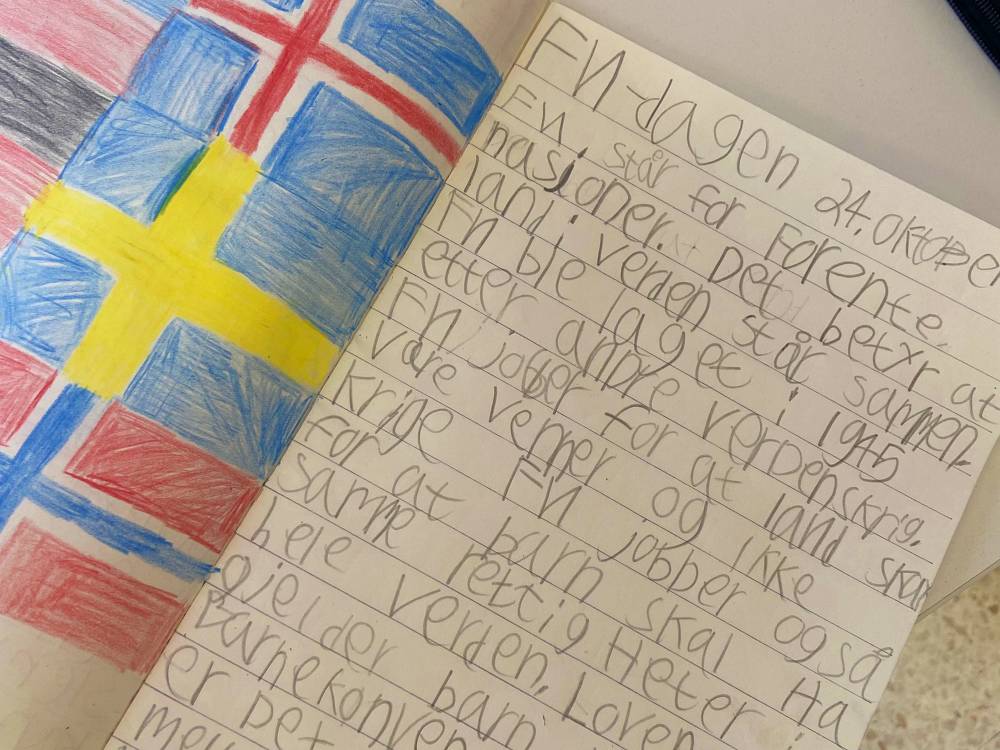 FN-dagen 24. oktober
FN står for Forente
nasjoner. Det betyr at
land i verden står sammen.
FN ble laget i 1945
etter andre verdenskrig.
FN jobber for at land skal
være venner og ikke
krige FN jobber også
for at barn skal Ha
samme rettig Heter i
hele verden. Loven
gjelder barn
Barnekonven
er Det